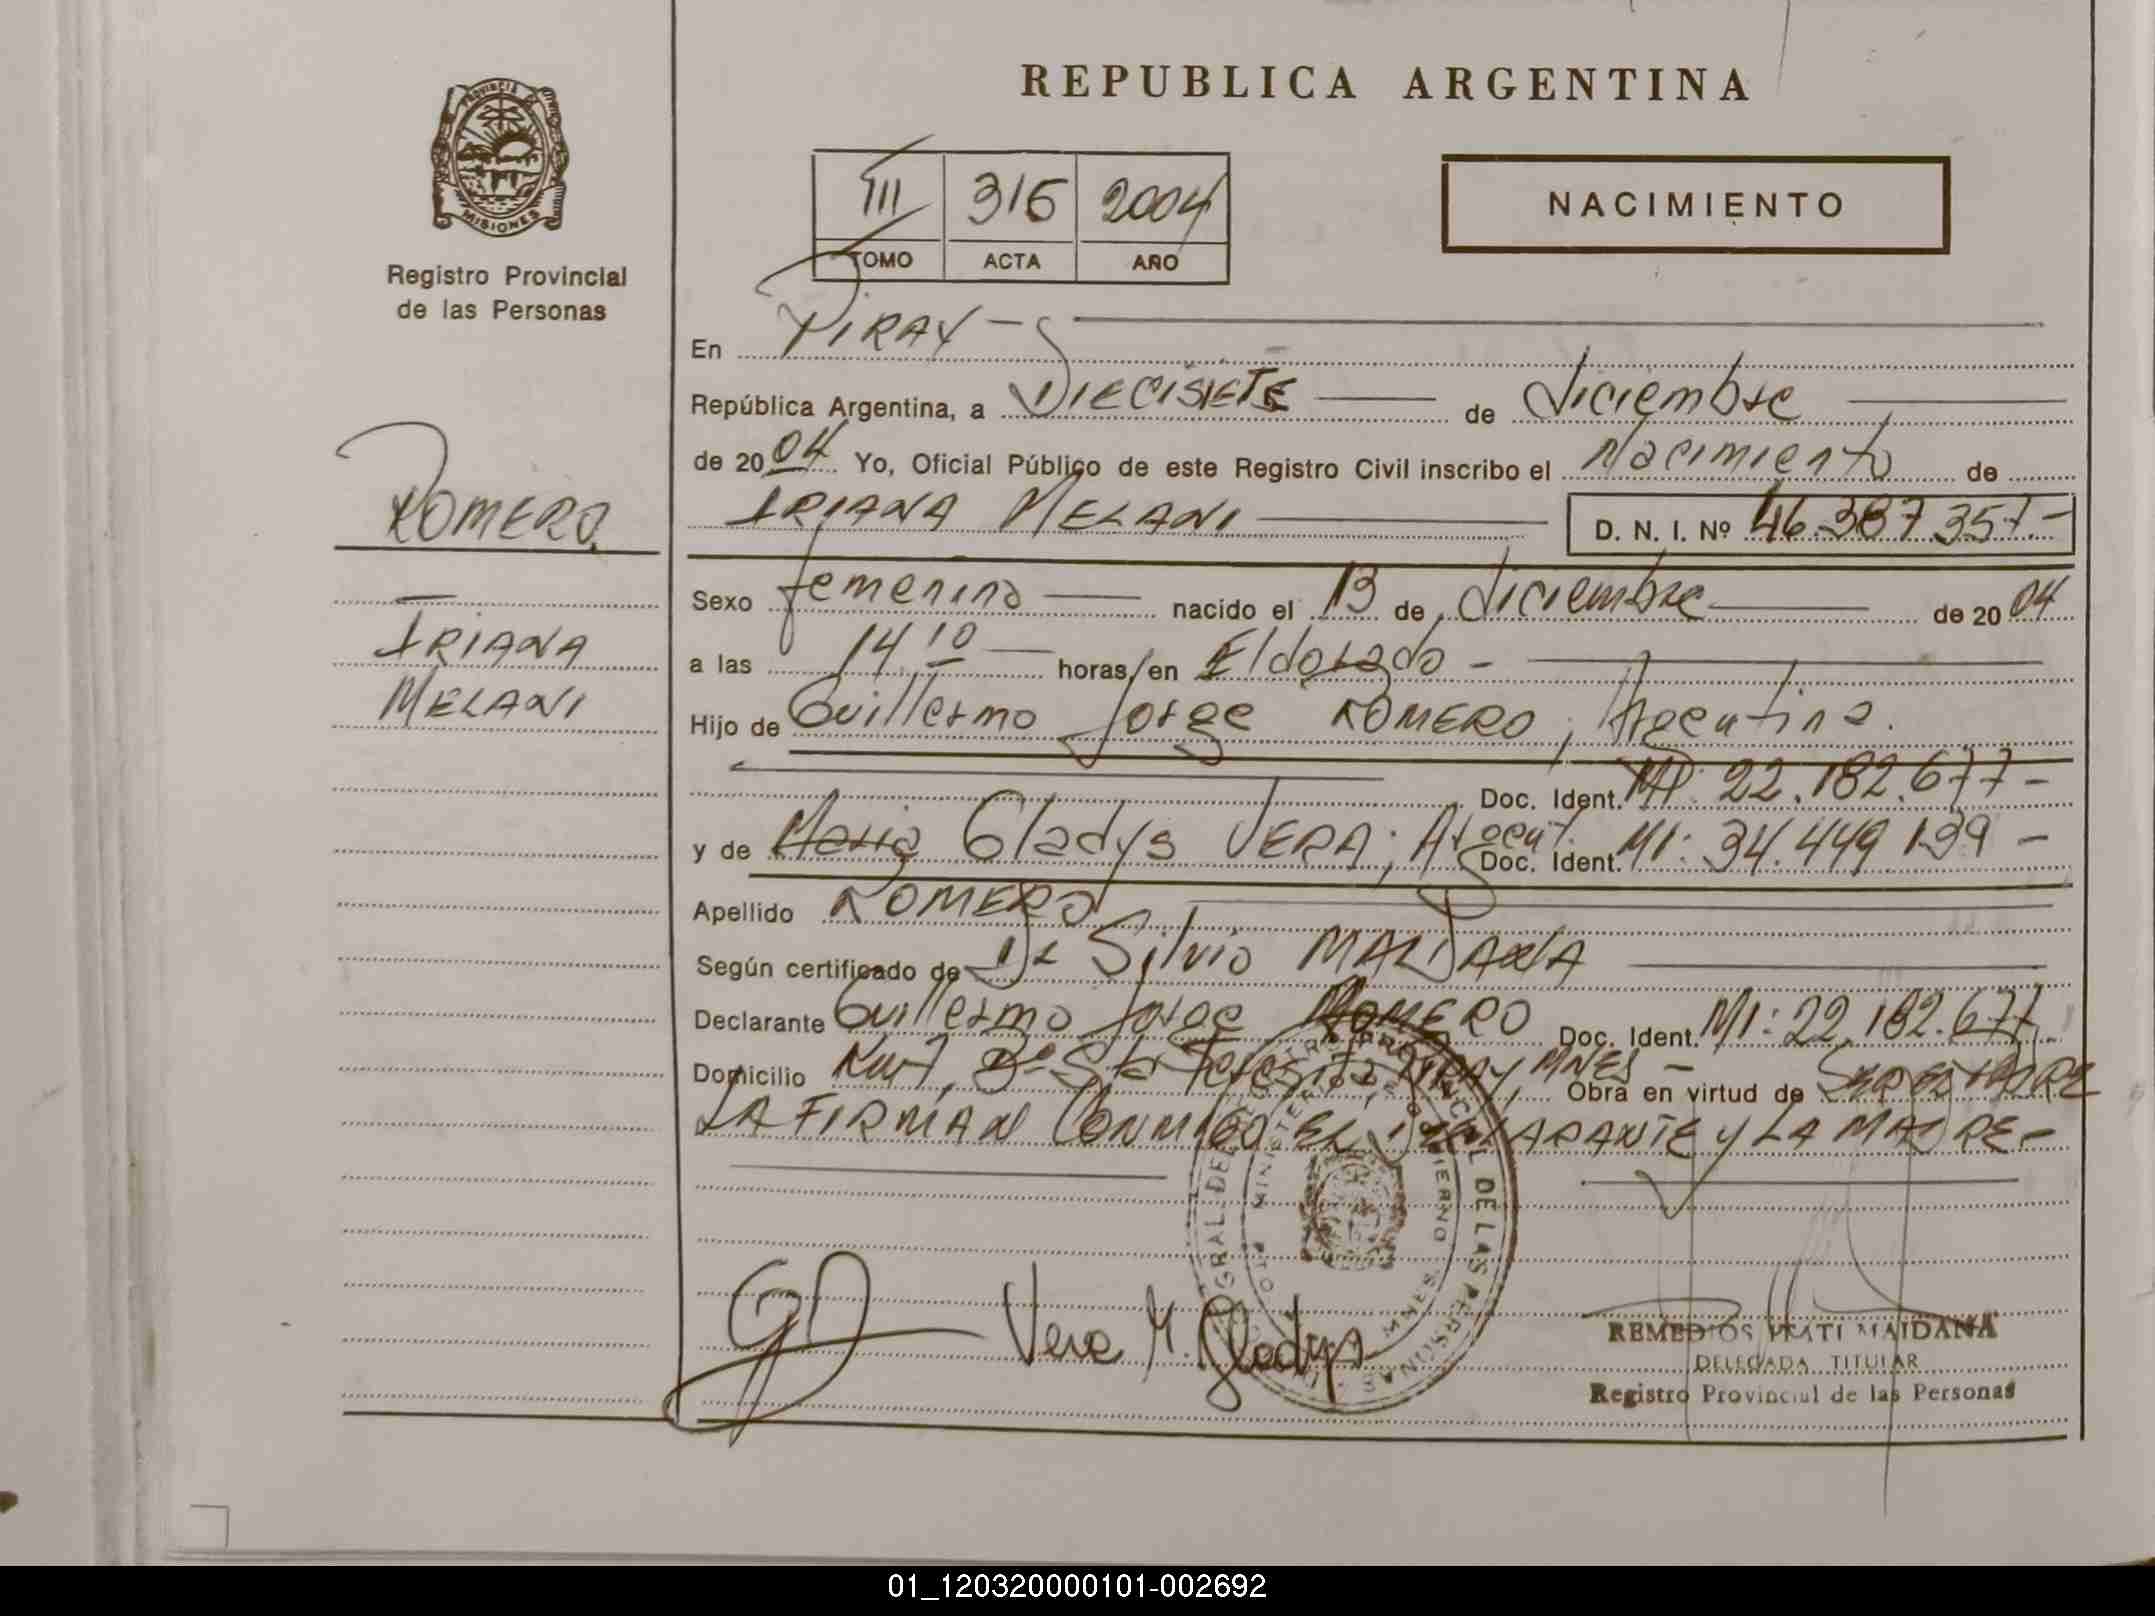 REPUBLICA ARGENTINA
PROVINCIA DE
MISIONES
Registro Provincial
de las Personas
III 316 2004
TOMO ACTA AÑO
NACIMIENTO
En PIRAY -
República Argentina, a DIECISIETE de diciembre
de 2004 Yo, Oficial Público de este Registro Civil inscribo el Nacimiento de
IRIANA MELANI D. N. I. Nº 46.387.357.-
ROMERO
IRIANA
MELANI
Sexo femenino nacido el 13 de diciembre de 2004
a las 14.10 horas, en Eldorado -
Hijo de Guillermo Jorge ROMERO, Argentina.
Doc. Ident. MI: 22.182.677 -
y de Maria Gladys VERA; Argent. Doc. Ident. MI: 34.449.139 -
Apellido ROMERO
Según certificado de Dr Silvio MALDANA
Declarante Guillermo Jorge ROMERO Doc. Ident. MI: 22.182.677.
Domicilio Bº Sta Teresita PIRAY, MNES - Obra en virtud de
LA FIRMAN CONMIGO EL DECLARANTE Y LA MADRE -
Vera M. Gladys
DE LAS PERSONAS
REMEDIOS PRATI MAIDANA
DELEGADA TITULAR
Registro Provincial de las Personas
01_120320000101-002692